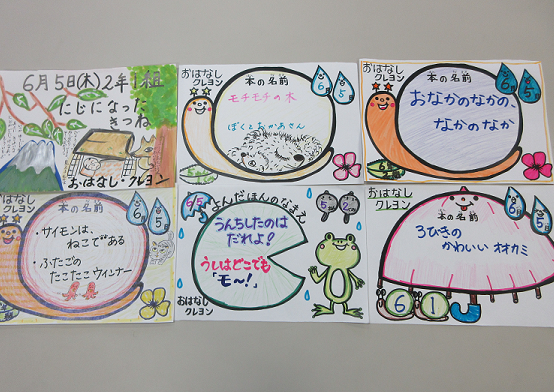 6月5日(木)2年1組
にじになった
きつね
おはなし・クレヨン
おはなし
クレヨン
本の名前
6
5
モチモチの木
ぼくとおかあさん
おはなし
クレヨン
本の名前
6
5
おなかのなかの、
なかのなか
おはなし
クレヨン
本の名前
6
5
・サイモンは、
ねこである
・ふたごの
たこたこウィンナー
6/5
よんだほんのなまえ
うんちしたのは
だれよ!
うしはどこでも
「モ〜!」
おはなし
クレヨン
おはなし
クレヨン
本の名前
6
5
3びきの
かわいいオオカミ
6
1